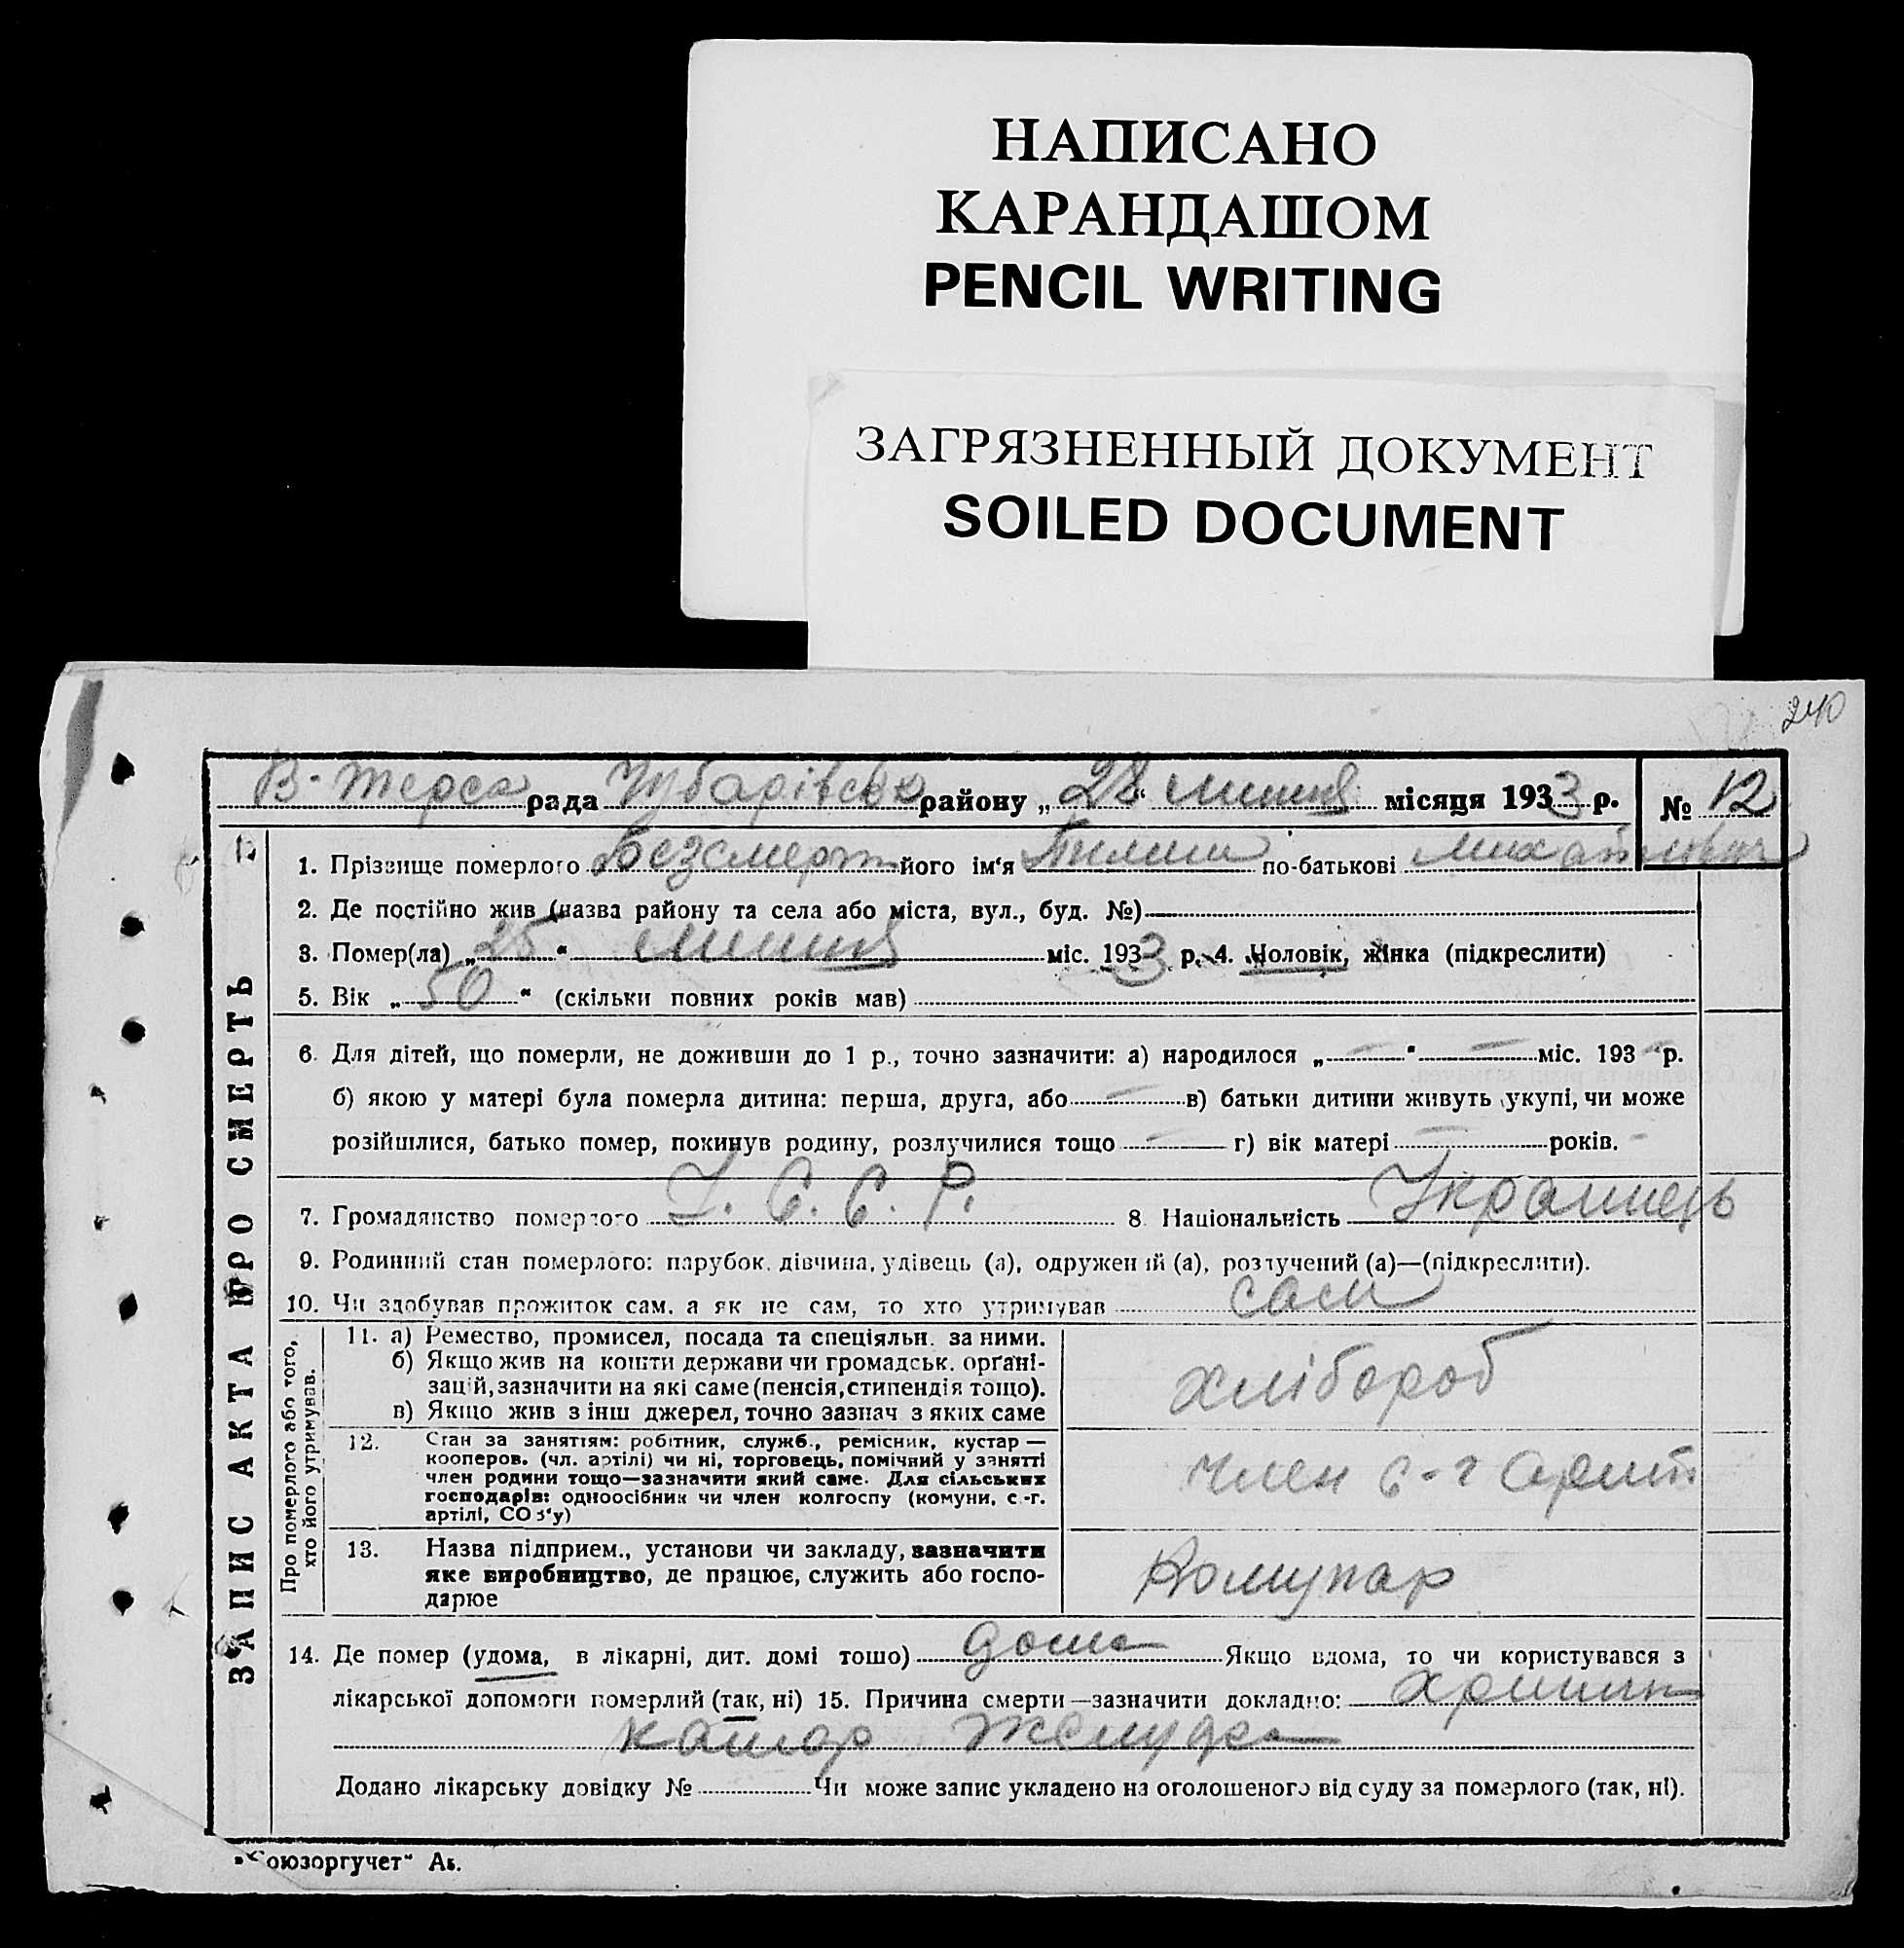 НАПИСАНО
КАРАНДАШОМ
PENCIL WRITING
ЗАГРЯЗНЕННЫЙ ДОКУМЕНТ
SOILED DOCUMENT
240
В-Терса рада Чубарівсько району „28“ липня місяця 1933 р. № 12
ЗАПИС АКТА ПРО СМЕРТЬ
1. Прізвище померлого Безсмерт його ім‘я Пилип по-батькові Михайлович
2. Де постійно жив (назва району та села або міста, вул., буд. №)
3. Помер(ла) „25“ липня міс. 1933 р. 4. Чоловік, жінка (підкреслити)
5. Вік „50“ (скільки повних років мав)
6. Для дітей, що померли, не доживши до 1 р., точно зазначити: а) народилося „—“ — міс. 193— р.
б) якою у матері була померла дитина: перша, друга, або — в) батьки дитини живуть укупі, чи може
розійшлися, батько помер, покинув родину, розлучилися тощо — г) вік матері — років. —
7. Громадянство померлого У. С. С. Р. 8. Національність Українець
9. Родинний стан померлого: парубок, дівчина, удівець (а), одружений (а), розлучений (а)—(підкреслити).
10. Чи здобував прожиток сам, а як не сам, то хто утримував сам
Про померлого або того,
хто його утримував.
11. а) Ремество, промисел, посада та спеціяльн. за ними.
б) Якщо жив на кошти держави чи громадськ. органі-
зацій, зазначити на які саме (пенсія, стипендія тощо).
в) Якщо жив з інш джерел, точно зазнач з яких саме
хлібороб
12. Стан за заняттям: робітник, служб., ремісник, кустар—
кооперов. (чл. артілі) чи ні, торговець, помічний у занятті
член родини тощо—зазначити який саме. Для сільських
господарів: одноосібник чи член колгоспу (комуни, с.-г.
артілі, СОЗ‘у)
член с-г арт.
13. Назва підприєм., установи чи закладу, зазначити
яке виробництво, де працює, служить або госпо-
дарює
Комунар
14. Де помер (удома, в лікарні, дит. домі тощо) дома Якщо вдома, то чи користувався з
лікарської допомоги померлий (так, ні) 15. Причина смерти—зазначити докладно:
катар желудка
Додано лікарську довідку № Чи може запис укладено на оголошеного від суду за померлого (так, ні).
„Союзоргучет“ Ак.